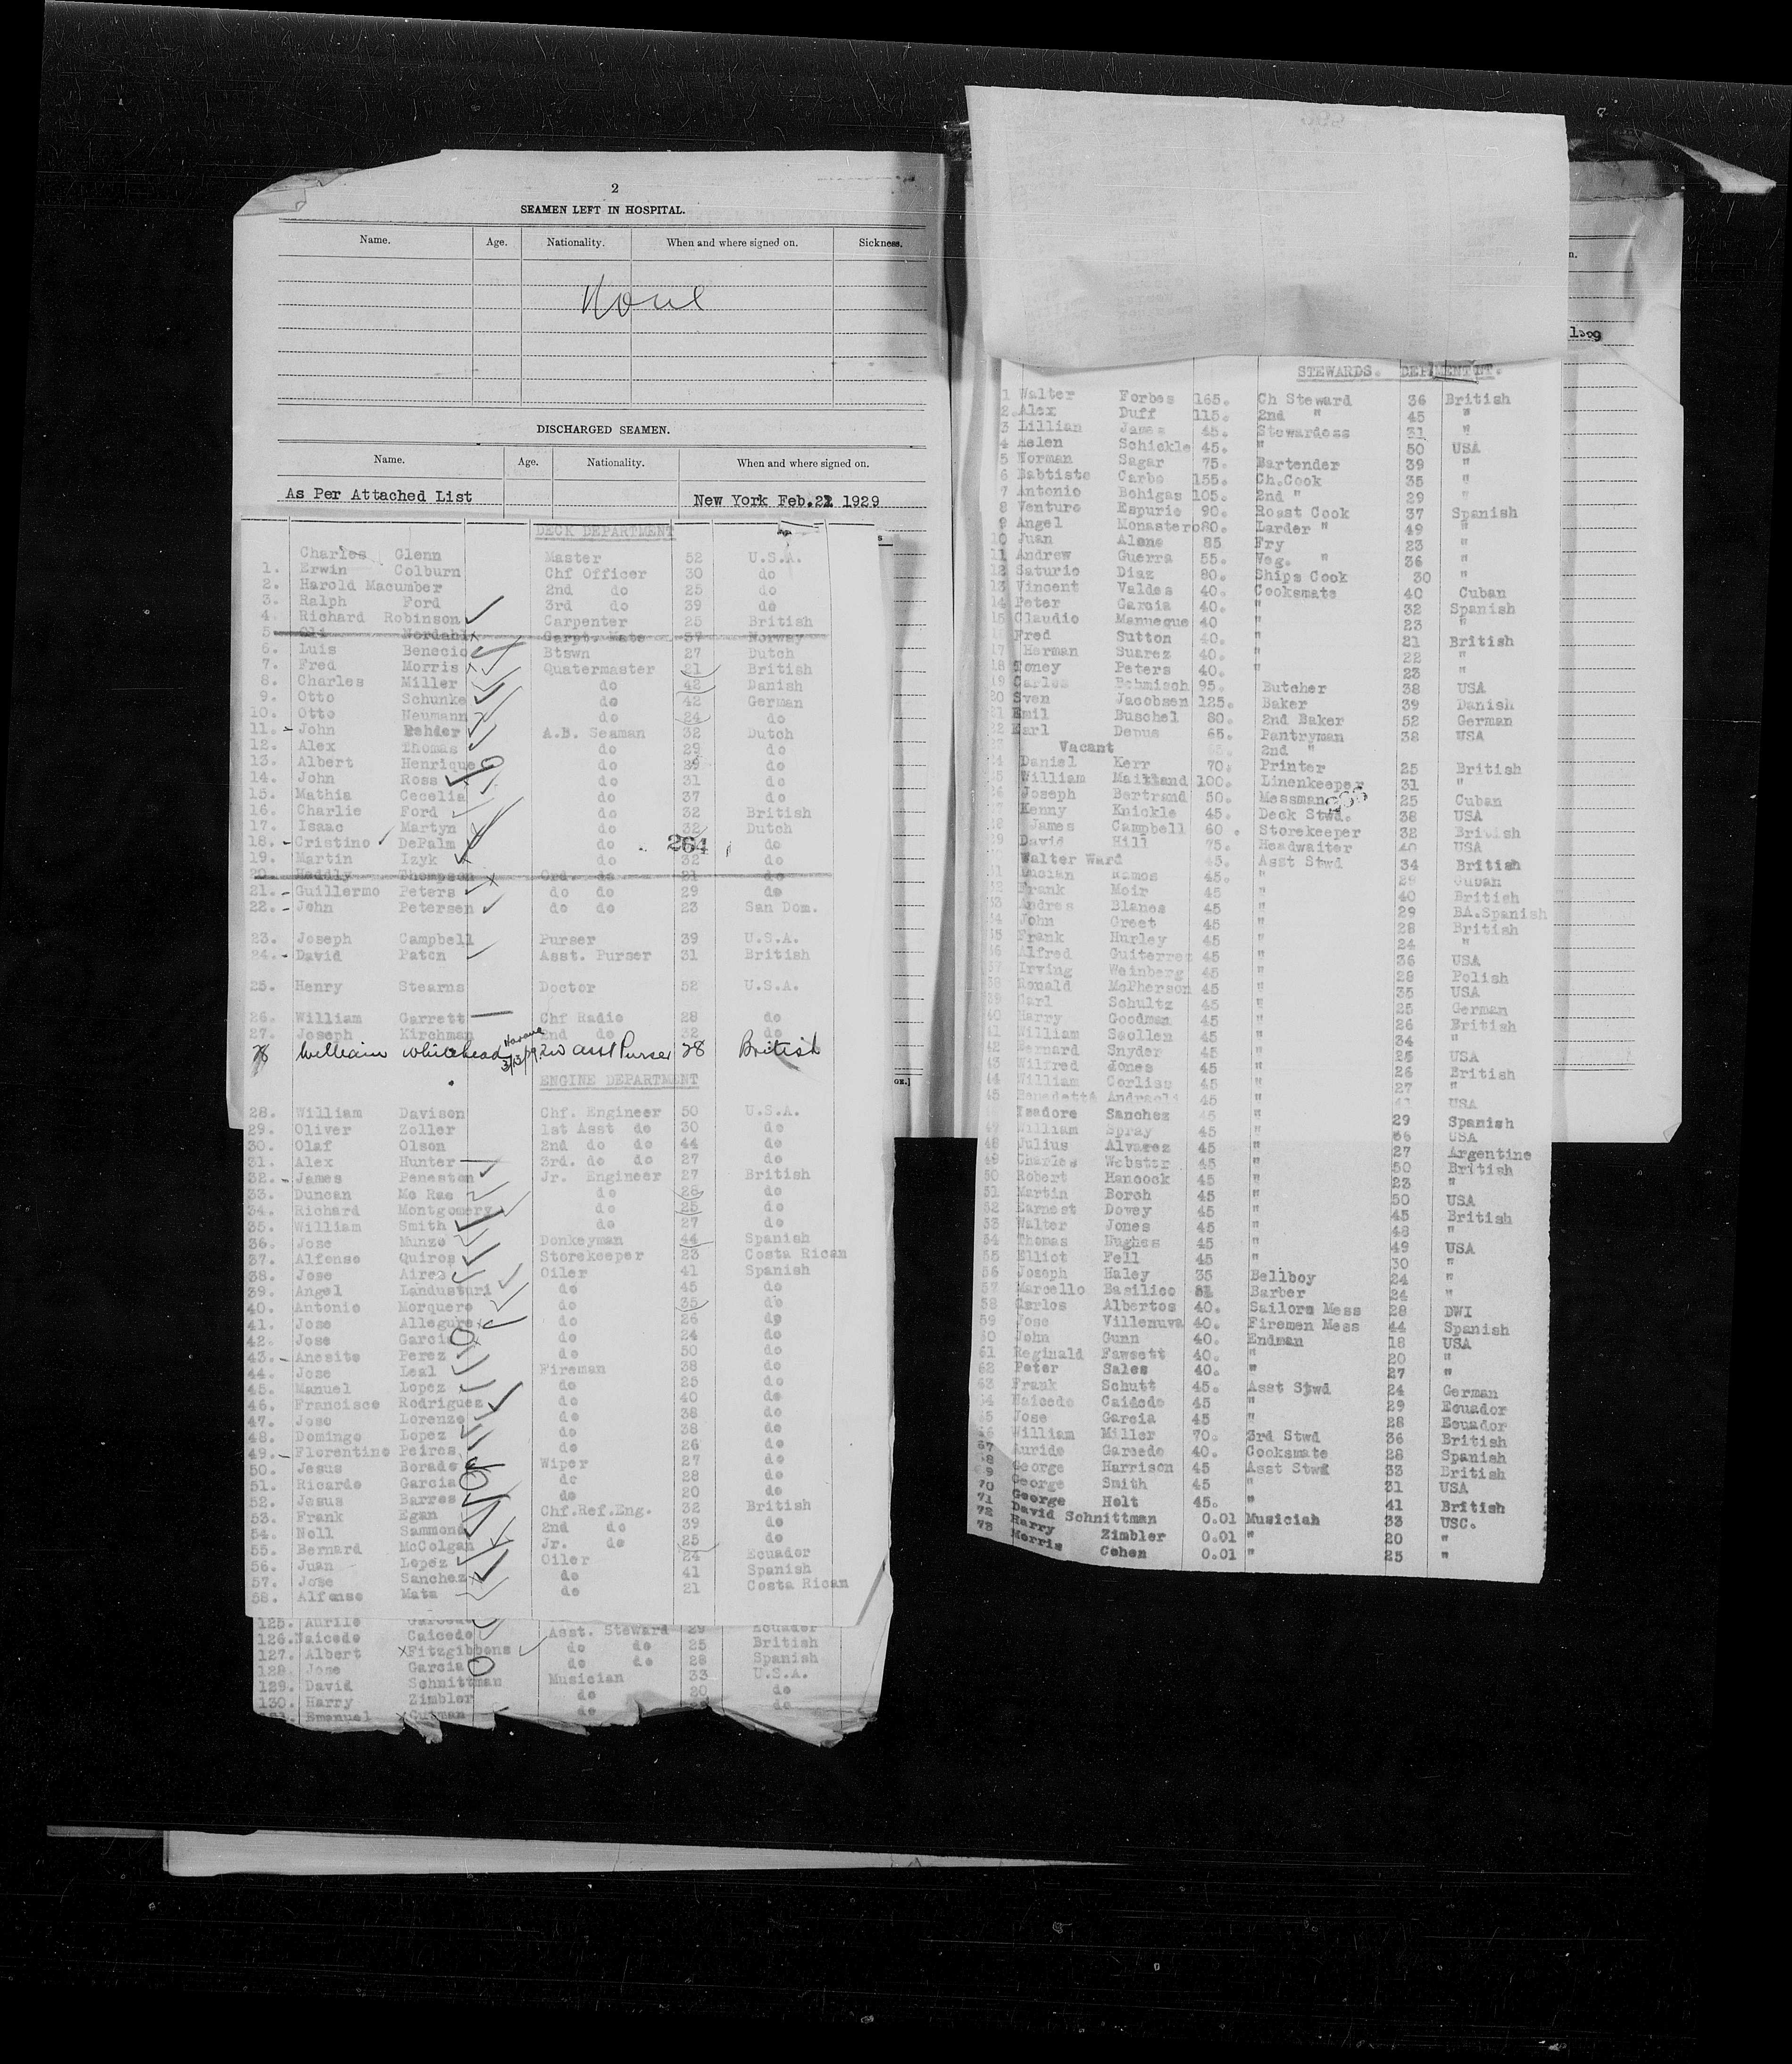 2
SEAMEN LEFT IN HOSPITAL.
Name. Age. Nationality. When and where signed on. Sickness.
None
DISCHARGED SEAMEN.
Name. Age. Nationality. When and where signed on.
As Per Attached List New York Feb. 1929
DECK DEPARTMENT
Charles Glenn Master 52 U.S.A.
1. Erwin Colburn Chf Officer 30 do
2. Harold Macumber 2nd do 25 do
3. Ralph Ford 3rd do 39 do
4. Richard Robinson Carpenter 25 British
5. Nordahl Carpt. Mate 37 Norway
6. Luis Benecio Btswn 27 Dutch
7. Fred Morris Quatermaster 21 British
8. Charles Miller do 42 Danish
9. Otto Schunke do 42 German
10. Otto Neumann do 24 do
11. John A.B. Seaman 32 Dutch
12. Alex Thomas do 29 do
13. Albert Henrique do do
14. John Ross do 31 do
15. Mathia Cecelia do 37 do
16. Charlie Ford do 32 British
17. Isaac Martyn do 32 Dutch
18. Cristino DePalm do 264 do
19. Martin Izyk do 32 do
20. Thompson Ord. do 21 do
21. Guillermo Peters do do 29 do
22. John Petersen do do 23 San Dom.
23. Joseph Campbell Purser 39 U.S.A.
24. David Paton Asst. Purser 31 British
25. Henry Stearns Doctor 52 U.S.A.
26. William Garrett Chf Radio 28 do
27. Joseph Kirchman 2nd do 32 do
William Whitehead Havana 3/13/29. 2nd Asst Purser 28 British
ENGINE DEPARTMENT
28. William Davison Chf. Engineer 50 U.S.A.
29. Oliver Zoller 1st Asst do 30 do
30. Olaf Olson 2nd do do 44 do
31. Alex Hunter 3rd. do do 27 do
32. James Peneston Jr. Engineer 27 British
33. Duncan Mc Rae do 28 do
34. Richard Montgomery do 25 do
35. William Smith do 27 do
36. Jose Munzo Donkeyman 44 Spanish
37. Alfonso Quiros Storekeeper 23 Costa Rican
38. Jose Aires Oiler 41 Spanish
39. Angel Landusturi do 45 do
40. Antonio Morquero do 35 do
41. Jose Allegure do 26 do
42. Jose Garcia do 24 do
43. Anesito Perez do 50 do
44. Jose Leal Fireman 38 do
45. Manuel Lopez do 25 do
46. Francisco Rodriguez do 40 do
47. Jose Lorenzo do 38 do
48. Domingo Lopez do 38 do
49. Florentino Peiros do 26 do
50. Jesus Borado Wiper 27 do
51. Ricardo Garcia do 28 do
52. Jesus Barres do 20 do
53. Frank Egan Chf.Ref.Eng. 32 British
54. Noll Sammond 2nd do 39 do
55. Bernard McColgan Jr. do 25 do
56. Juan Lopez Oiler 24 Ecuador
57. Jose Sanchez do 41 Spanish
58. Alfonso Mata do 21 Costa Rican
125. Aurilo 29 Ecuador
126. Naicedo Caicedo Asst. Steward 25 British
127. Albert Fitzgibbons do do 28 Spanish
128. Jose Garcia do do 33 U.S.A.
129. David Schnittman Musician 20 do
130. Harry Zimbler do do
Emanuel Gutman do
STEWARDS. DEPARTMENT.
1 Walter Forbes 165. Ch Steward 36 British
2 Alex Duff 115. 2nd " 45 "
3 Lillian James 45. Stewardess 31 "
4 Helen Schickle 45. " 50 USA
5 Norman Sagar 75. Bartender 39 "
6 Babtiste Carbo 155. Ch.Cook 35 "
7 Antonio Bohigas 105. 2nd " 29 "
8 Venture Espurio 90. Roast Cook 37 Spanish
9 Angel Monastero 80. Larder " 49 "
10 Juan Alono 85 Fry 23 "
11 Andrew Guerra 55. Veg. " 36 "
12 Saturio Diaz 80. Ships Cook 30 "
13 Vincent Valdes 40. Cooksmate 40 Cuban
14 Peter Garcia 40. " 32 Spanish
15 Claudio Manueque 40 " 23 "
Fred Sutton 40. " 21 British
17 Herman Suarez 40. " 22 "
18 Toney Peters 40. " 23 "
19 Carlos Behmisch 95. Butcher 38 USA
20 Sven Jacobsen 125. Baker 39 Danish
21 Emil Buschel 80. 2nd Baker 52 German
22 Earl Depus 65. Pantryman 38 USA
Vacant 2nd "
24 Daniel Kerr 70. Printer 25 British
25 William Maitland 100. Linenkeeper 31 "
26 Joseph Bertrand 50. Messman 25 Cuban
27 Kenny Knickle 45. Deck Stwd. 38 USA
28 James Campbell 60. Storekeeper 32 British
29 David Hill 75. Headwaiter 40 USA
Walter Ward 45. Asst Stwd 34 British
31 Ramos 45. " 29 Cuban
32 Frank Moir 45 " 40 British
33 Andres Blanes 45 " 29 BA.Spanish
34 John Greet 45 " 28 British
35 Frank Hurley 45 " 24 "
36 Alfred Guiterrez 45 " 36 USA
37 Irving Weinberg 45 " 29 Polish
38 Ronald McPherson 45 " 35 USA
39 Carl Schultz 45 " 25 German
40 Harry Goodman 45 " 26 British
41 William Scollen 45 " 34 "
42 Bernard Snyder 45 " 25 USA
43 Wilfred Jones 45 " 26 British
44 William Corliss 45 " 27 "
45 45 " USA
Ysadore Sanchez 45 " 29 Spanish
47 William Spray 45 " 66 USA
48 Julius Alvarez 45 " 27 Argentine
49 Charles Webster 45 " 50 British
50 Robert Hancock 45 " 23 "
51 Martin Borch 45 " 50 USA
52 Earnest Dovey 45 " 45 British
53 Walter Jones 45 " 48 "
54 Thomas Hughes 45 " 49 USA
55 Elliot Fell 45 " 30 "
56 Joseph Haley 35 Bellboy 24 "
57 Marcello Basilico Barber 24 "
58 Carlos Albertos 40. Sailors Mess 28 DWI
59 Jose Villenuva 40. Firemen Mess 44 Spanish
60 John Gunn 40. Endman 18 USA
61 Reginald Fawsett 40. " 20 "
62 Peter Sales 40. " 27 "
63 Frank Schutt 45. Asst Stwd 24 German
64 Naicedo Caicedo 45 " 29 Ecuador
65 Jose Garcia 45 " 28 Ecuador
66 William Miller 70. 3rd Stwd 36 British
67 Auride Garcedo 40. Cooksmate 28 Spanish
68 George Harrison 45 Asst Stwd 33 British
69 George Smith 45 " 31 USA
70 George Holt 45. " 41 British
71 David Schnittman 0.01 Musician 33 USC.
72 Harry Zimbler 0.01 " 20 "
73 Morris Cohen 0.01 " 25 "